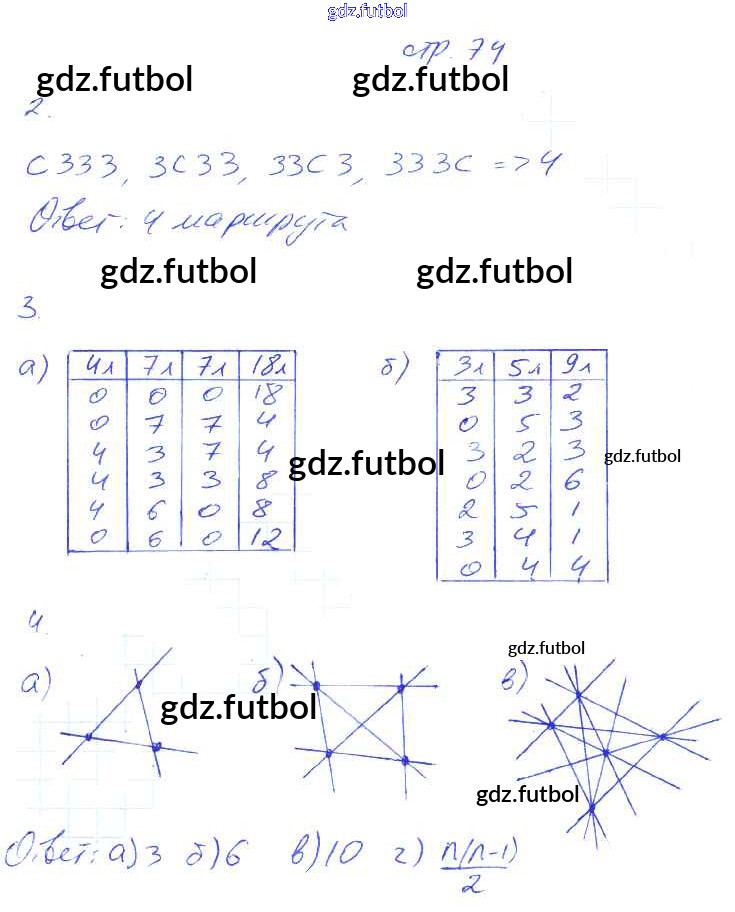 gdz.futbol
стр. 74
gdz.futbol gdz.futbol
2.
СЗЗЗ, ЗСЗЗ, ЗЗСЗ, ЗЗЗС => 4
Ответ: 4 маршрута
gdz.futbol gdz.futbol
3.
а) 4л 7л 7л 18л б) 3л 5л 9л
0 0 0 18 3 3 2
0 7 7 4 0 5 3
4 3 7 4 3 2 3
gdz.futbol gdz.futbol
4 3 3 8 0 2 6
4 6 0 8 2 5 1
0 6 0 12 3 4 1
0 4 4
4.
gdz.futbol
а) б) в)
gdz.futbol
gdz.futbol
Ответ: а) 3 б) 6 в) 10 г) n(n-1)
2